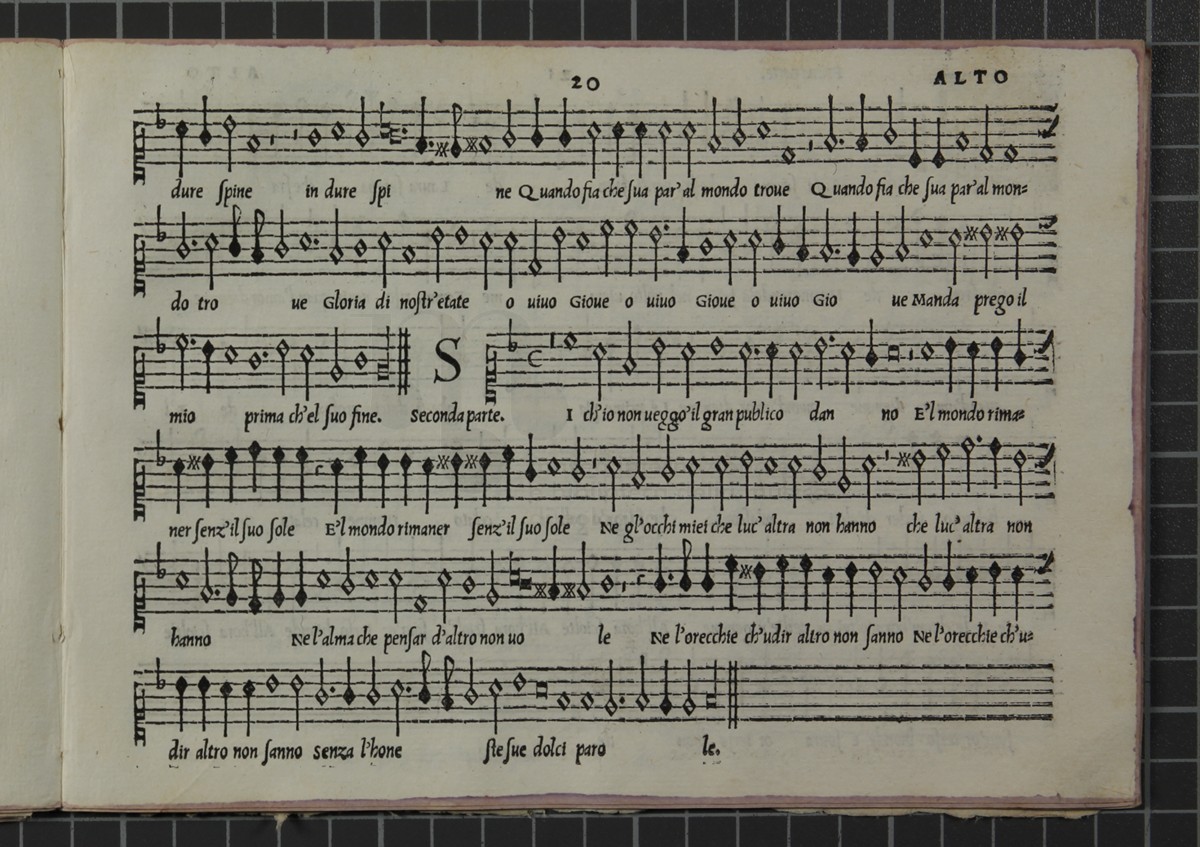 20 ALTO
dure ſpine in dure ſpi ne Quando fia che ſua par'al mondo troue Quando fia che ſua par'al mon=
do tro ue Gloria di noſtr'etate o uiuo Gioue o uiuo Gioue o uiuo Gio ue Manda prego il
mio prima ch'el ſuo fine. Seconda parte. S I ch'io non ueggo'il gran publico dan no E'l mondo rima=
ner ſenz'il ſuo ſole E'l mondo rimaner ſenz'il ſuo ſole Ne gl'occhi miei che luc'altra non hanno che luc'altra non
hanno Ne l'alma che penſar d'altro non uo le Ne l'orecchie ch'udir altro non ſanno Ne l'orecchie ch'u=
dir altro non ſanno Senza l'hone ſte ſue dolci paro le.